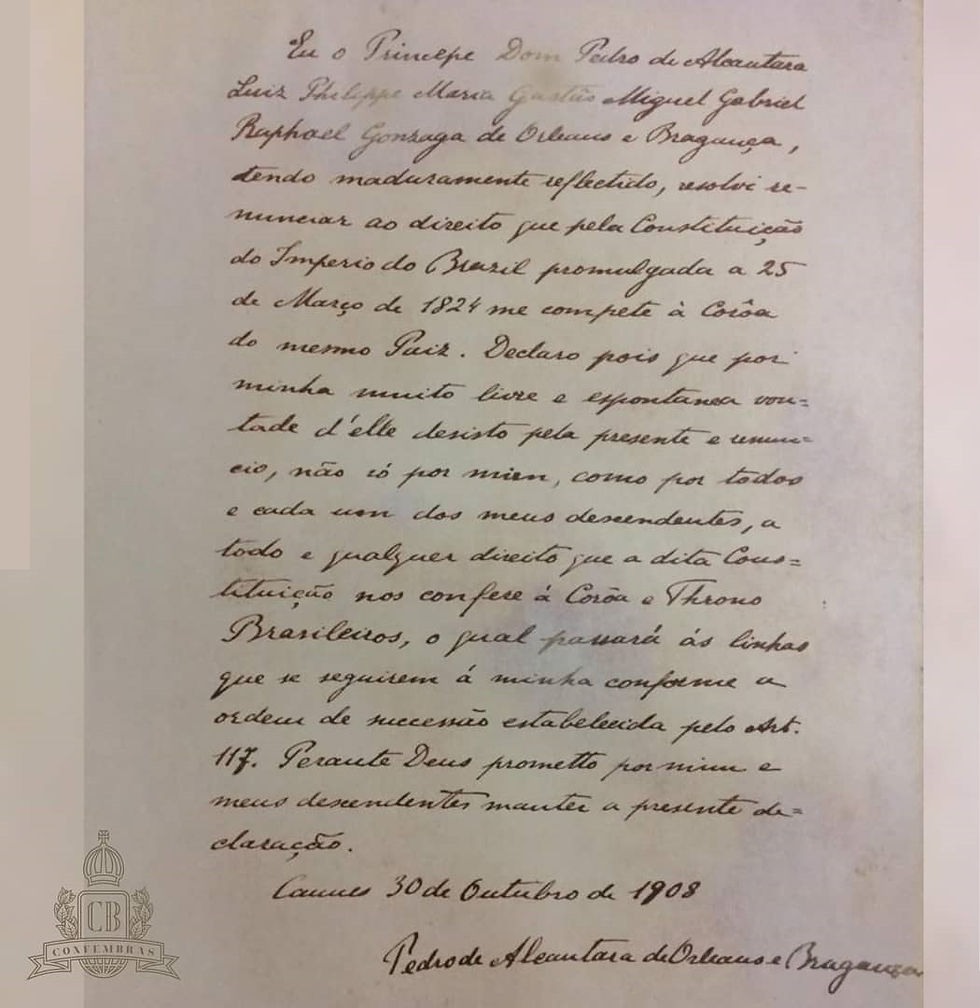 Eu o Principe Dom Pedro de Alcantara
Luiz Philippe Maria Gastão Miguel Gabriel
Raphael Gonzaga de Orleans e Bragança,
tendo maduramente reflectido, resolvi re-
nunciar ao direito que pela Constituição
do Imperio do Brazil promulgada a 25
de Março de 1824 me compete à Corôa
do mesmo Paiz. Declaro pois que por
minha muito livre e espontanea von=
tade d'elle desisto pela presente e renun=
cio, não só por mim, como por todos
e cada um dos meus descendentes, a
todo e qualquer direito que a dita Cons=
tituição nos confere á Corôa e Throno
Brasileiros, o qual passará ás linhas
que se seguirem á minha conforme a
ordem de successão estabelecida pelo Art.
117. Perante Deus prometto por mim e
meus descendentes manter a presente de=
claração.
Cannes 30 de Outubro de 1908
Pedro de Alcantara de Orleans e Bragança
CB
CONFEMBRAS